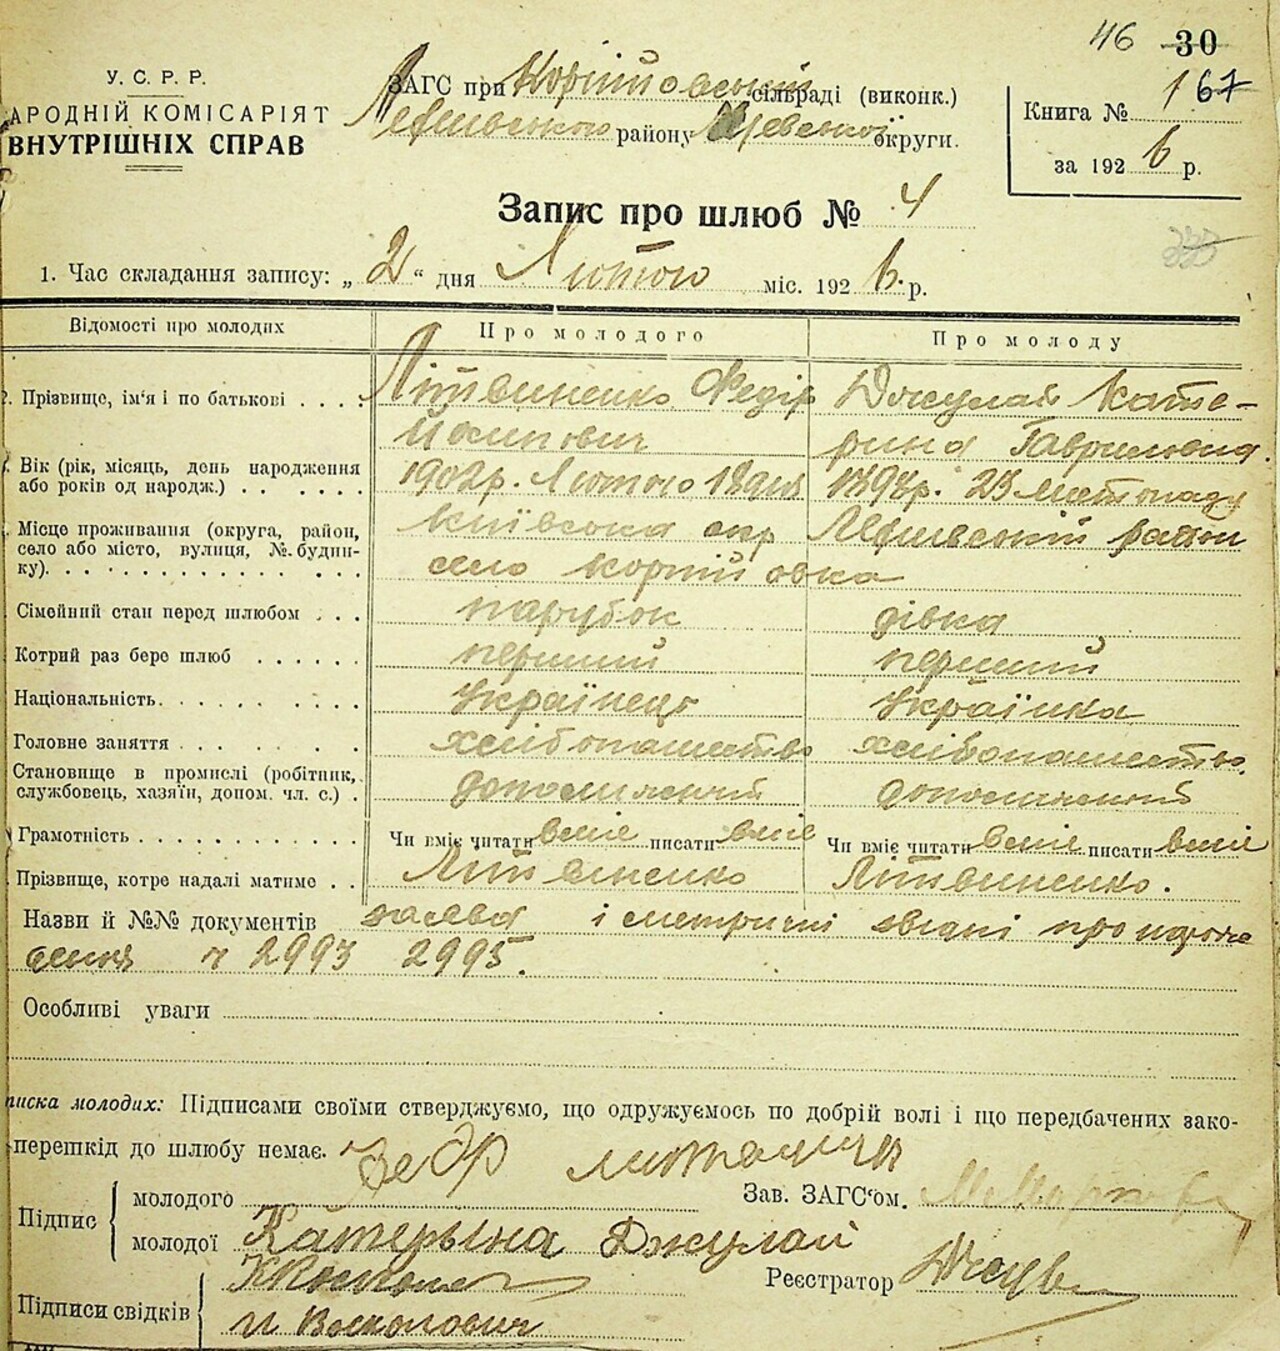 46 30
У. С. Р. Р.
АРОДНІЙ КОМІСАРІЯТ
ВНУТРІШНІХ СПРАВ
ЗАГС при сільраді (виконк.)
району округи.
Книга № 167
за 1926 р.
Запис про шлюб № 4
1. Час складання запису: „2“ дня Лютого міс. 1926. р.
Відомості про молодих Про молодого Про молоду
Прізвище, ім‘я і по батькові . . . . Літвиненко Федір Джулай Кате-
Йосипович рина Гаврилівна.
Вік (рік, місяць, день народження 1902р. Лютого 18 дня 1898р. 23 листопаду
або років од народж.) . . . . . .
Місце проживання (округа, район, Київська окр район
село або місто, вулиця, №. будин-
ку). . . . . . . . . . . . . . . село
Сімейний стан перед шлюбом . . . парубок дівка
Котрий раз бере шлюб . . . . . . перший перший
Національність. . . . . . . . . . Українець Українка
Головне заняття . . . . . . . . хлібопашество хлібопашество.
Становище в промислі (робітник,
службовець, хазяїн, допом. чл. с.) .
Грамотність . . . . . . . . . . . . Чи вміє читати вміє писати вміє Чи вміє читати вміє писати вміє
Прізвище, котре надалі матиме . . Літвиненко Літвиненко.
Назви й №№ документів заява і метричні про народж
ення 2993 2995.
Особливі уваги
писка молодих: Підписами своїми стверджуємо, що одружуємось по добрій волі і що передбачених зако-
перешкід до шлюбу немає.
Підпис молодого Зав. ЗАГС‘ом.
молодої Катерына Джулай
Реєстратор
Підписи свідків